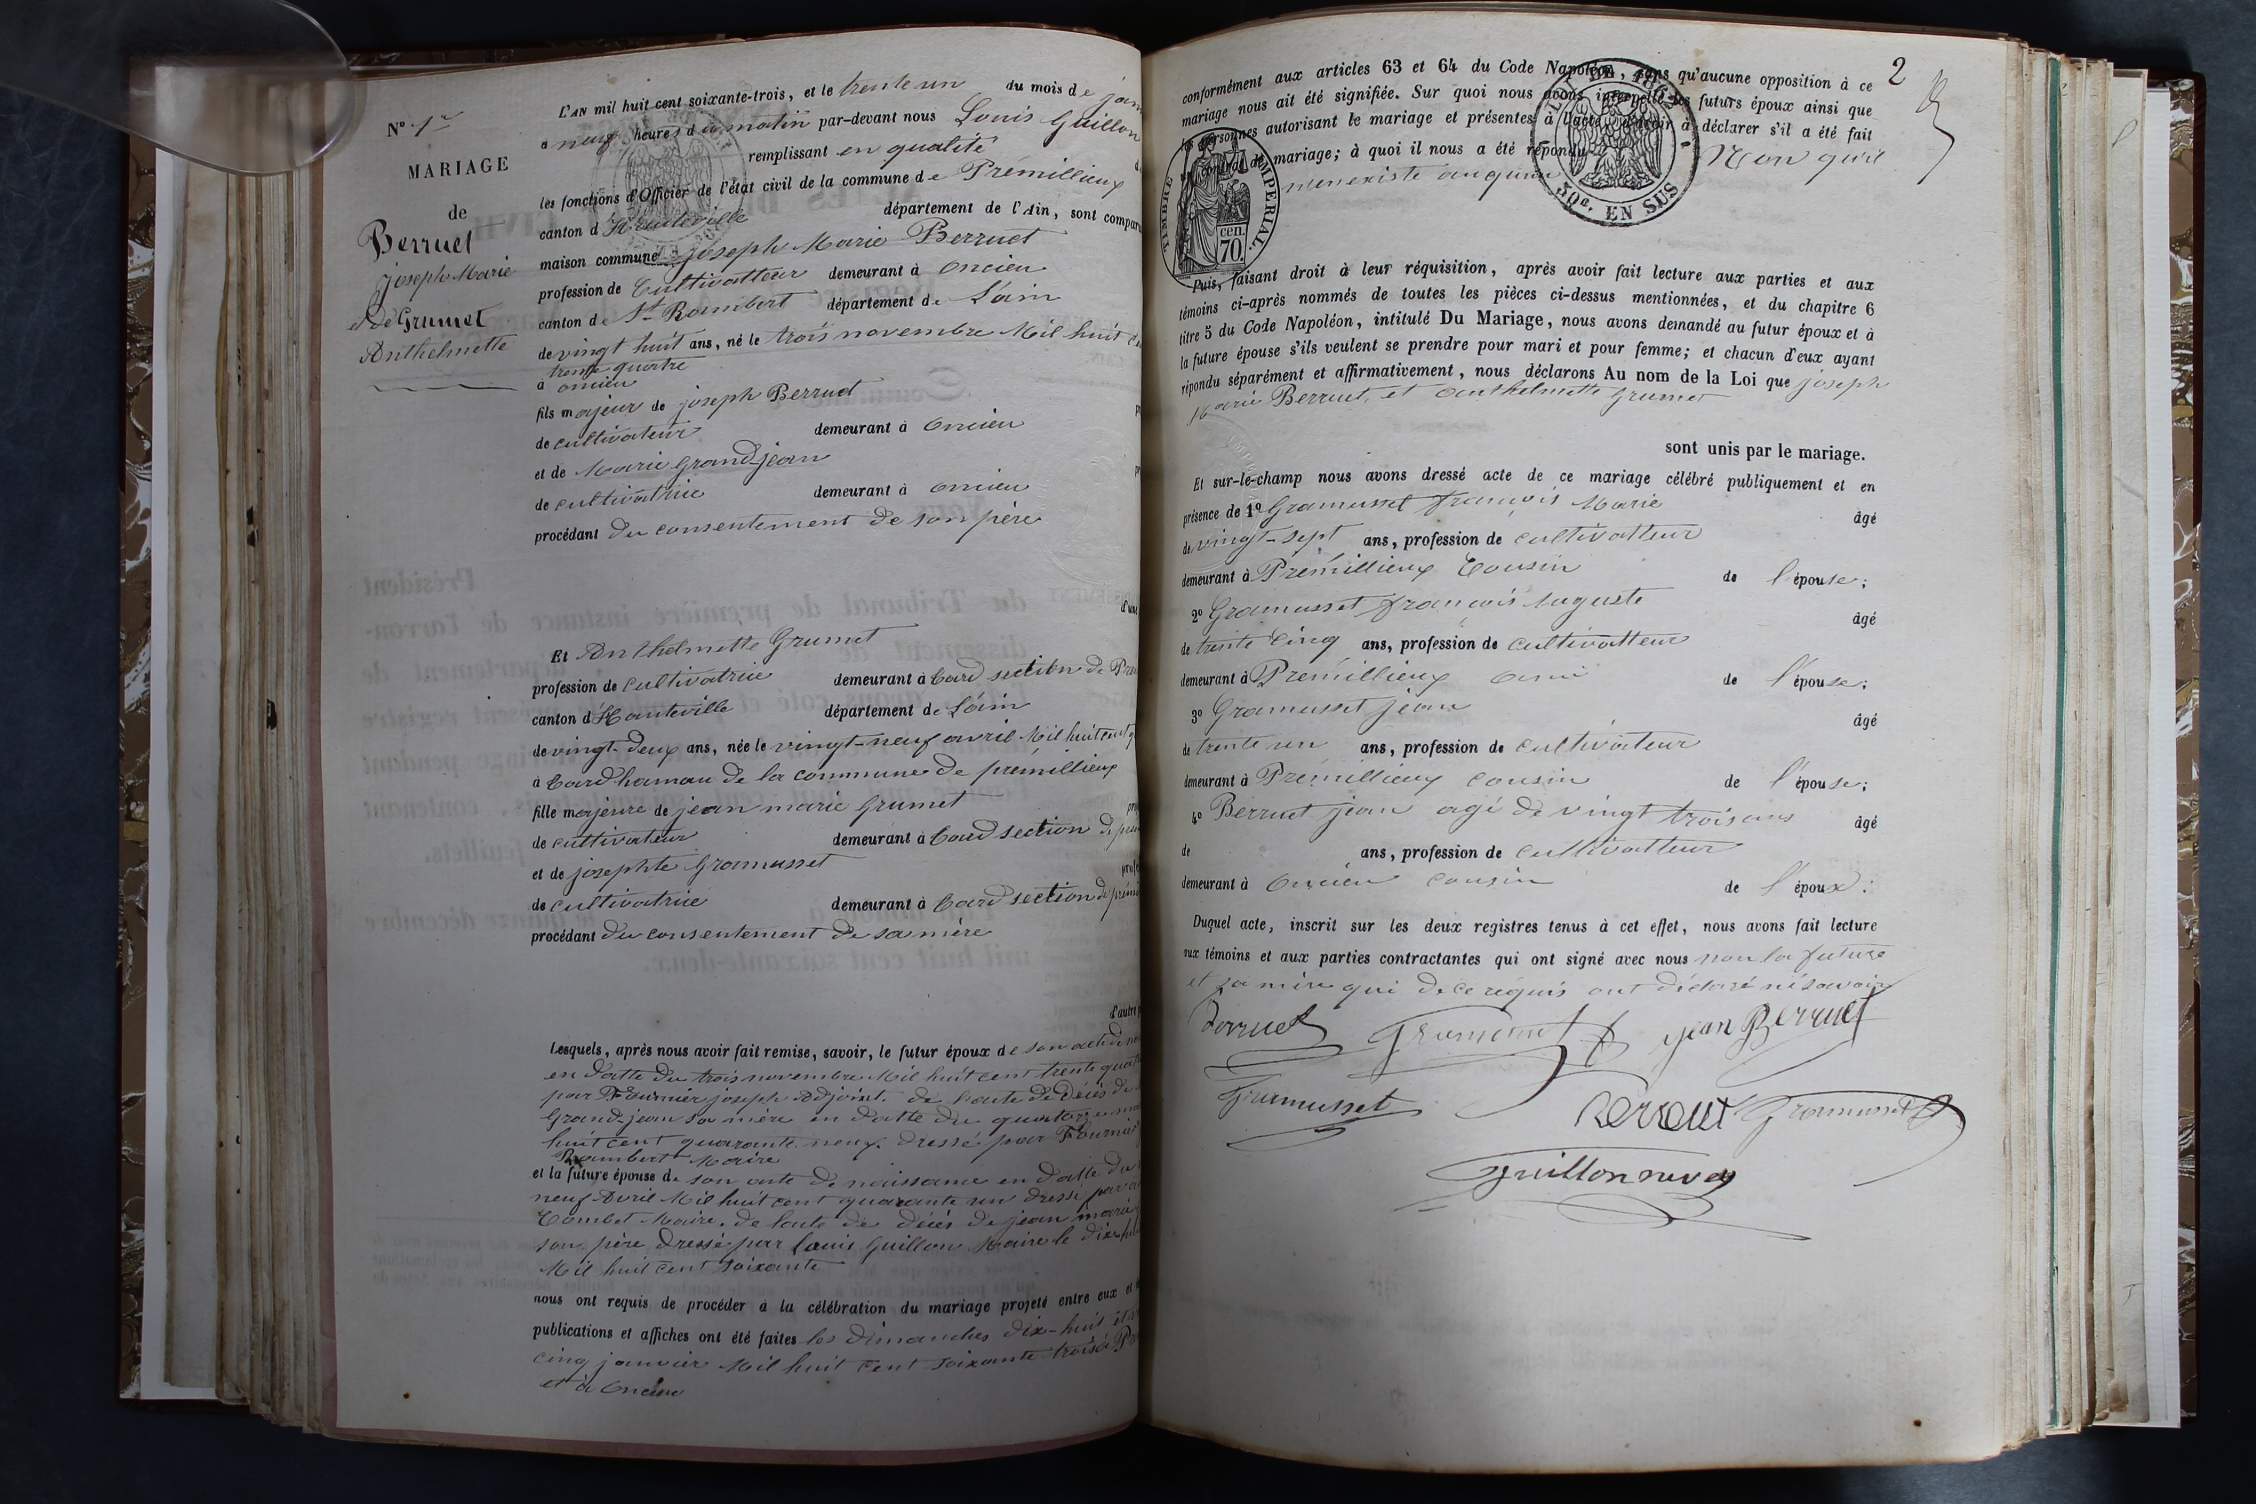 N° 1er
MARIAGE
de
Berruet
joseph Marie
et de Grumet
Anthelmette
L'AN mil huit cent soixante-trois, et le trente un du mois de jan
a neuf heures du matin par-devant nous Louis Guillon
remplissant en qualité d
les fonctions d'Officier de l'état civil de la commune de Prémillieux
canton d'Hauteville département de l'Ain, sont compar
maison commune joseph Marie Berruet
profession de Cultivatteur demeurant à oncieu
canton de St Rambert département de L'ain
de vingt huit ans, né le trois novembre Mil huit c
trente quatre
à oncieu
fils majeur de joseph Berruet
de cultivateur demeurant à oncieu
et de Marie Grandjean
de cultivatrice demeurant à oncieu
procédant du consentement de son père
d'une
Et Anthelmette Grumet
profession de Cultivatrice demeurant à Card section de Prém
canton d'Hauteville département de L'ain
de vingt-deux ans, née le vingt-neuf avril Mil huit cent q
à Card hamau de la commune de prémillieux
fille majeure de jean marie Grumet
de cultivateur demeurant à Card section de prem
et de josephte Gramusset
de cultivatrice demeurant à Card section de prémi
procédant du consentement de sa mère
d'autre
Lesquels, après nous avoir fait remise, savoir, le futur époux de son acte de
en datte du trois novembre Mil huit cent trente quat
par Fournier joseph Adjoint. de l'acte de Décès de
Grandjean sa mère en datte du quatorze
huit cent quarante neuf. dressé par Fournier
Rambert Maire
et la future épouse de son acte de naissance en datte du
neuf Avril Mil huit cent quarante un dressé par
Combet Maire. de l'acte de décès de jean marie
son père dressé par Louis Guillon Maire le dix-hui
Mil huit cent soixante
nous ont requis de procéder à la célébration du mariage projeté entre eux et
publications et affiches ont été faites les dimanches dix-huit et
cinq janvier Mil huit cent soixante trois à Pr
et à oncieu
2
conformément aux articles 63 et 64 du Code Napoléon, sans qu'aucune opposition à ce
mariage nous ait été signifiée. Sur quoi nous avons interpellé les futurs époux ainsi que
les personnes autorisant le mariage et présentes à l'acte, d'avoir à déclarer s'il a été fait
un contrat de mariage; à quoi il nous a été répondu Non qu'il
n'en existe auqu'un
LOI DE 1862
50c. EN SUS
TIMBRE IMPERIAL.
cen.
70.
Puis, faisant droit à leur réquisition, après avoir fait lecture aux parties et aux
témoins ci-après nommés de toutes les pièces ci-dessus mentionnées, et du chapitre 6
titre 5 du Code Napoléon, intitulé Du Mariage, nous avons demandé au futur époux et à
la future épouse s'ils veulent se prendre pour mari et pour femme; et chacun d'eux ayant
répondu séparément et affirmativement, nous déclarons Au nom de la Loi que joseph
Marie Berruet, et anthelmette Grumet
sont unis par le mariage.
Et sur-le-champ nous avons dressé acte de ce mariage célébré publiquement et en
présence de 1° Gramusset françois Marie âgé
de vingt-sept ans, profession de cultivatteur
demeurant à Prémillieux Cousin de l'épouse;
2° Gramusset françois Auguste âgé
de trente cinq ans, profession de cultivatteur
demeurant à Prémillieux ami de l'épouse;
3° Gramusset jean âgé
de trente un ans, profession de cultivateur
demeurant à Prémillieux cousin de l'épouse;
4° Berruet jean agé de vingt trois ans âgé
de ans, profession de Cultivatteur
demeurant à Oncieu cousin de l'époux:
Duquel acte, inscrit sur les deux registres tenus à cet effet, nous avons fait lecture
aux témoins et aux parties contractantes qui ont signé avec nous non la future
et sa mère qui de ce réquis ont déclaré ne savoir
Berruet Gramusset jean Berruet
Gramusset Berruet Gramusset
Guillon